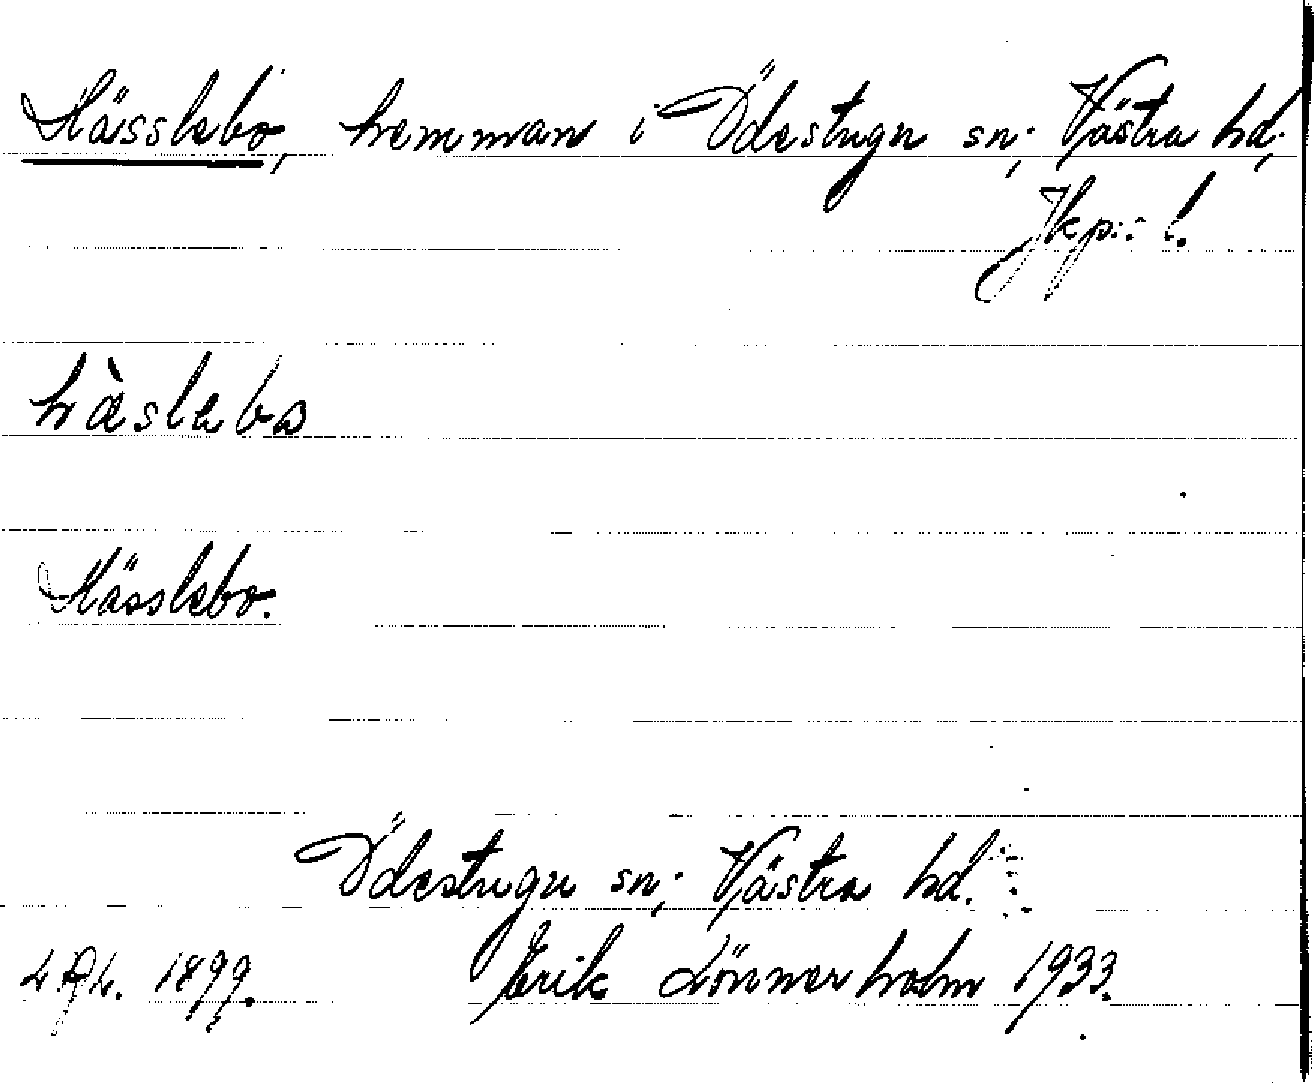 Hässlebo, hemman i Ödestugu sn; Västra hd;
Jkp:s l.
hàslebo
Hässlebo.
Ödestugu sn; Västra hd.
1899. Erik Lönnerholm 1933.